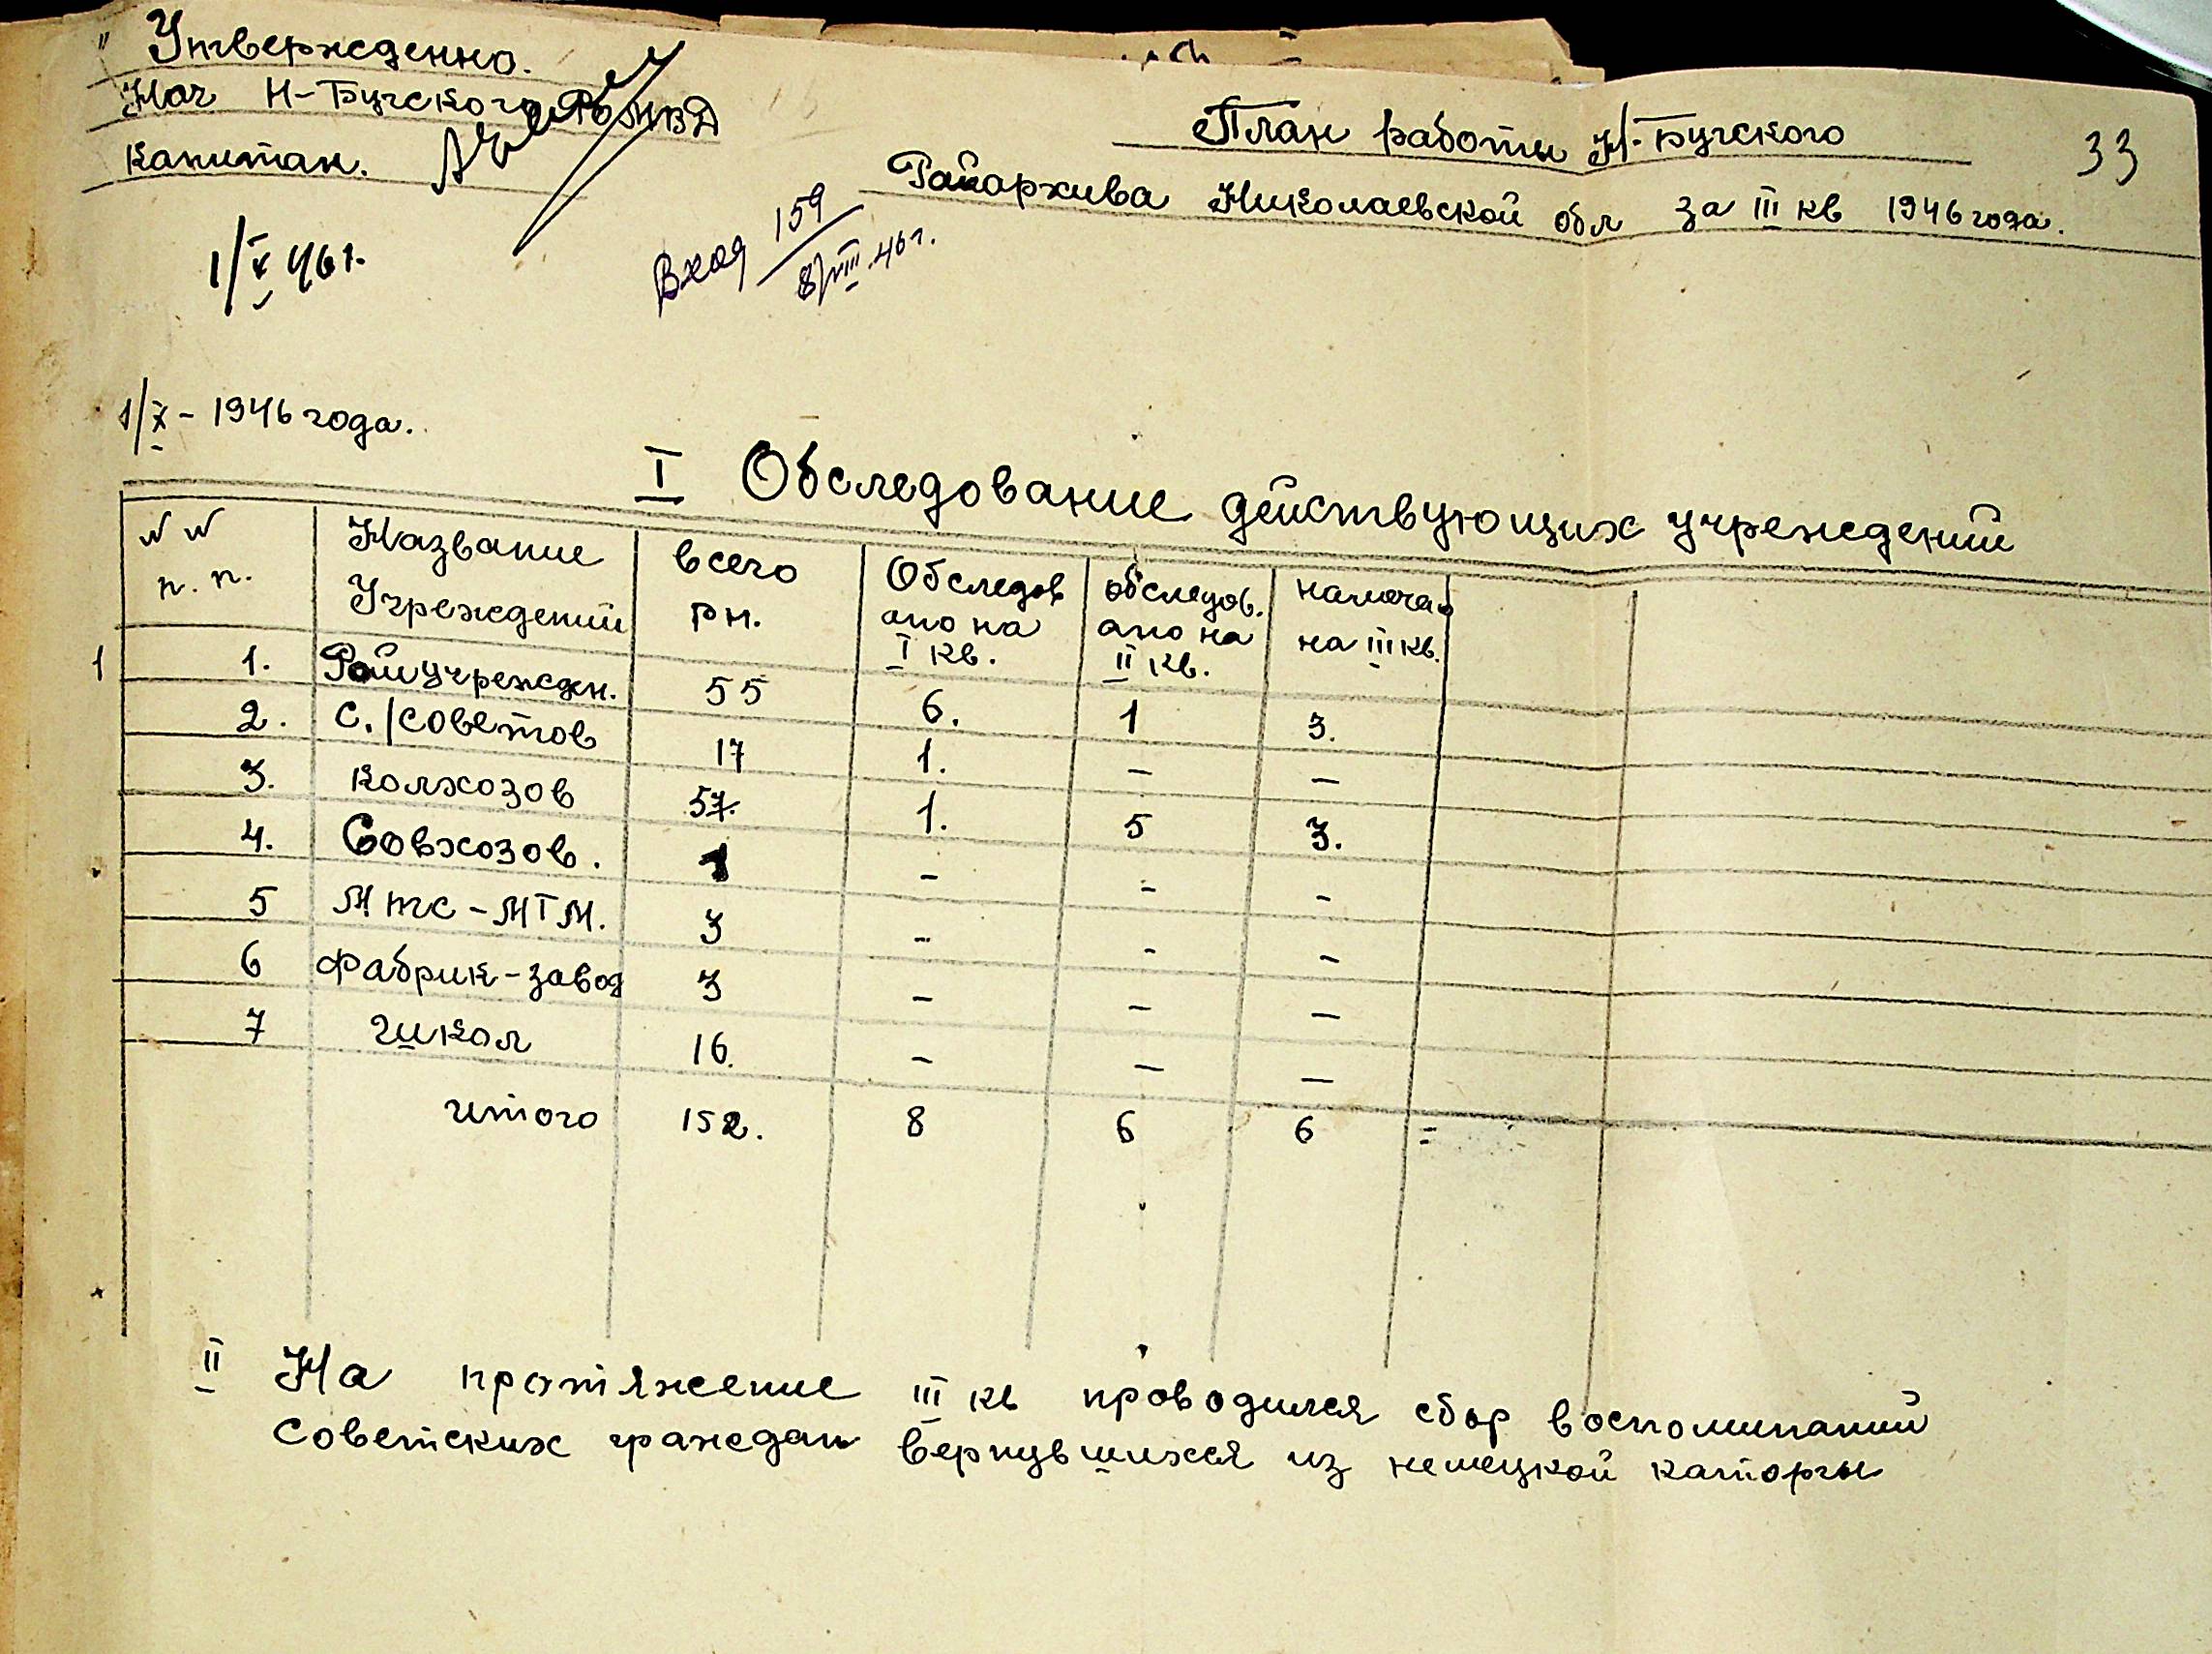 " Утвержденно.
Нач Н-Бугского РОМВД
капитан.
1/X 46 г.
Вход 159
8/VIII 46 г.
План работы Н-Бугского
33
Райархива Николаевской обл за III кв 1946 года.
1/X - 1946 года.
I Обследование действующих учреждений
№ № п. п. Название Учреждений всего рн. Обследовано на I кв. обследов. ано на II кв. на III кв.
1 1. Райучрежден. 55 6. 1 3.
2. С./советов 17 1. – –
3. колхозов 57. 1. 5 3.
4. Совхозов. 1 – – –
5 Мтс - МТМ. 3 – – –
6 Фабрик-завод 3 – – –
7 школ 16. – – –
итого 152. 8 6 6 =
II На протяжение III кв проводился сбор воспоминаний
советских граждан вернувшихся из немецкой каторги